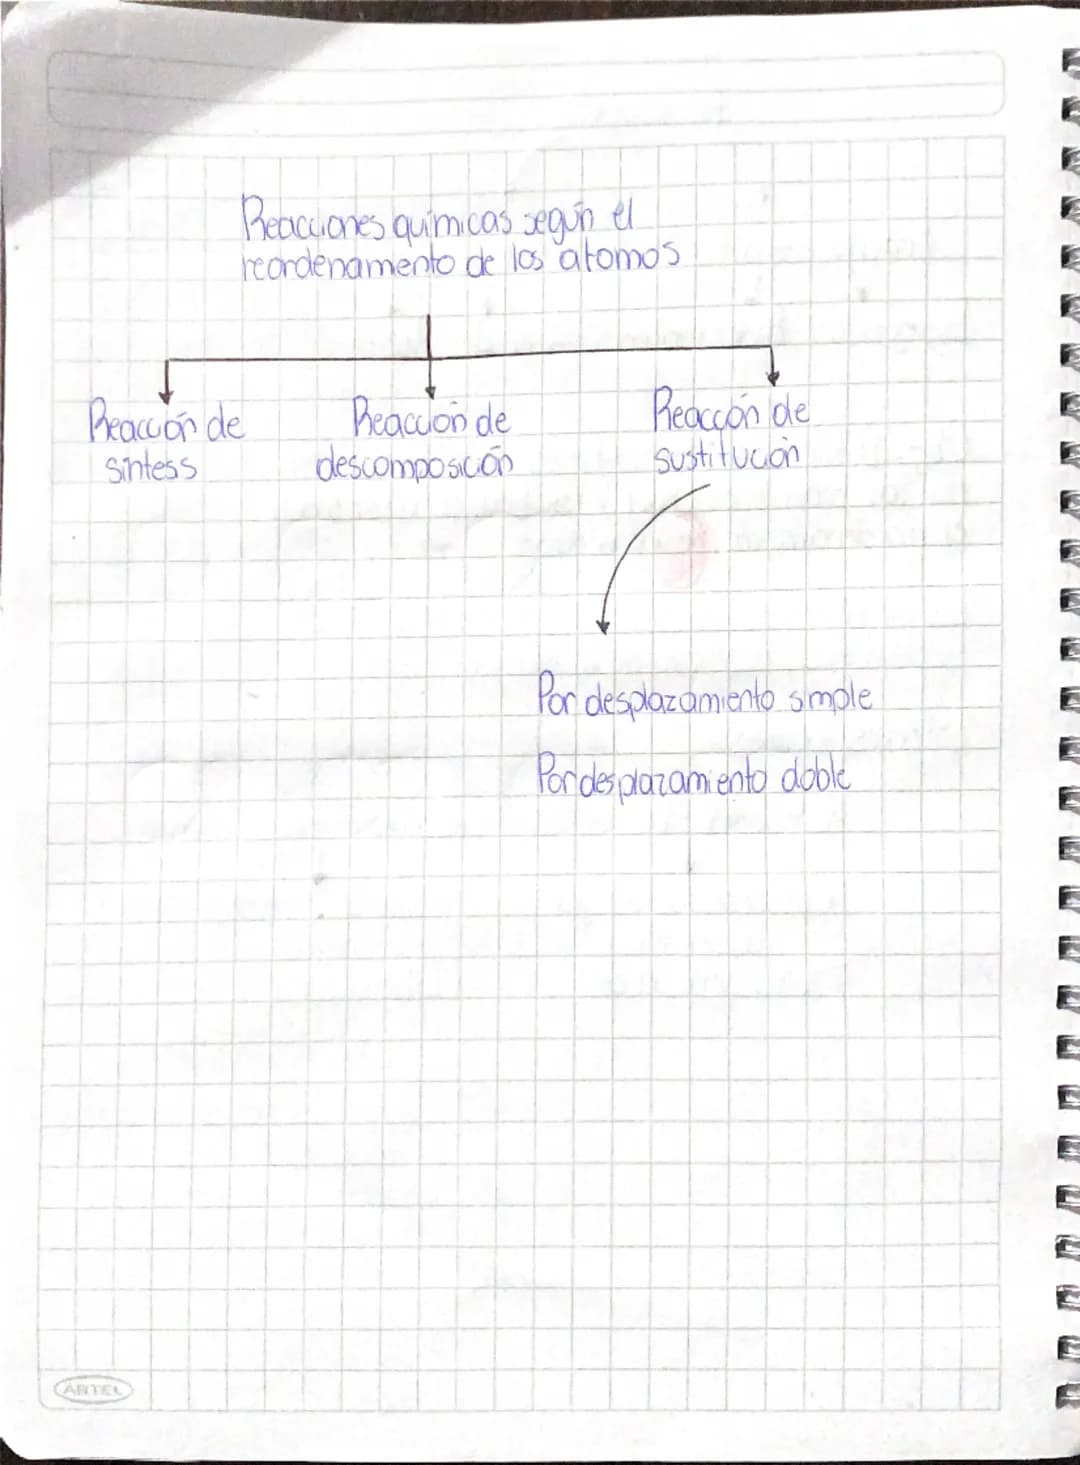 Reacciones químicas según el
reordenamento de los atomos
Reacción de
síntess
Reaccion de
descomposicón
Reaccón de
sustitución
Por desplazamiento simple
Por desplazamiento doble
ARTEL